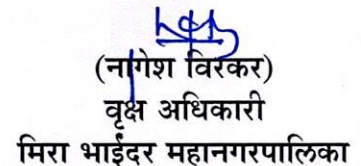 (नागेश विरकर)
वृक्ष अधिकारी
मिरा भाईंदर महानगरपालिका